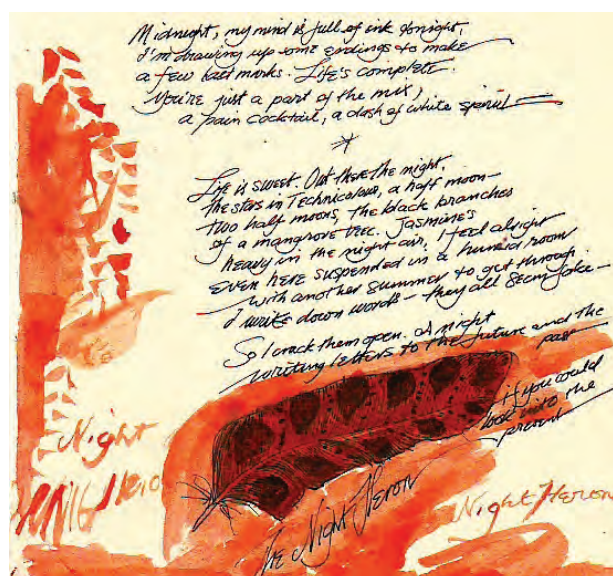 Midnight, my mind is full of ink tonight,
I'm drawing up some endings to make
a few last marks. Life's complete.
You're just a part of the mix,
a pain cocktail, a dash of white spirit—
Life is sweet. Out there the night,
the stars in Technicolour, a half moon—
two half moons, the black branches
of a mangrove tree. Jasmine's
heavy in the night air, I feel alright
even here suspended in a humid room
with another summer to get through.
I write down words— they all seem fake—
So I crack them open. At night
writing letters to the future and the
past
if you could
look into the
present
Night
Night Heron
The Night Heron